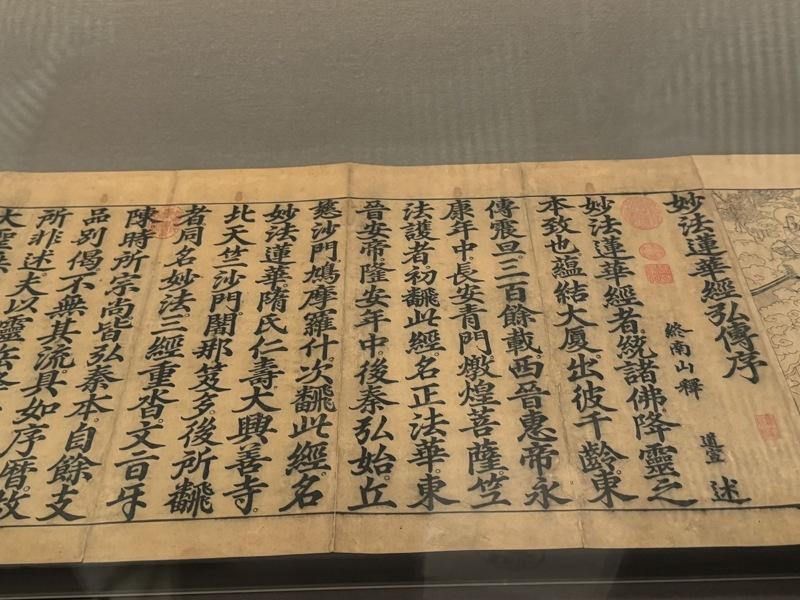 妙法蓮華經弘傳序
終南山釋 道宣 述
妙法蓮華經者統諸佛降靈之
本致也蘊結大厦出彼千齡東
傳震旦三百餘載西晉惠帝永
康年中長安青門燉煌菩薩竺
法護者初飜此經名正法華東
晉安帝隆安年中後秦弘始丘
慈沙門鳩摩羅什次飜此經名
妙法蓮華隋氏仁壽大興善寺
北天竺沙門闍那笈多後所飜
者同名妙法三經重沓文旨㸦
陳時所宗尚皆弘秦本自餘支
品別偈不無其流具如序曆故
所非述夫以靈岳
大聖無